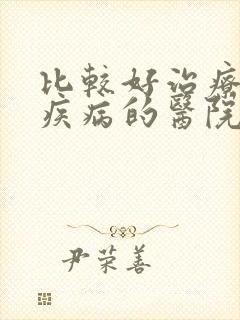 比較好治療
疾病的醫院
尹荣善